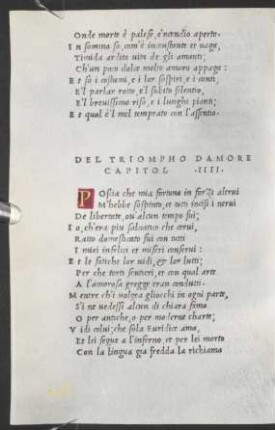 Onde morte è palese, e'ncendio aperto.
In somma so, com'è inconstante et vaga,
Timida ardita vita de gli amanti;
Ch'un poco dolce molto amaro appaga:
Et so i costumi, e i lor sospiri, e i canti,
E'l parlar rotto, e'l subito silentio,
E'l brevissimo riso, e i lunghi pianti;
Et qual è'l mel temprato con l'assentio.
DEL TRIOMPHO D'AMORE
CAPITOL .IIII.
Poscia che mia fortuna in forza altrui
M'hebbe sospinto, et tutti incisi i nervi
Di libertate, ov'alcun tempo fui;
Io, ch'era piu salvatico che cervi,
Ratto domesticato fui con tutti
I miei infelici et miseri conservi:
Et le fatiche lor vidi, et lor lutti;
Per che torti sentieri, et con qual arte
A l'amorosa gregge eran condutti.
Mentre ch'i volgea gliocchi in ogni parte,
S'i ne vedessi alcun di chiara fama
O per antiche, o per moderne charte;
Vidi colui; che sola Euridice ama,
Et lei segue a l'inferno, et per lei morto
Con la lingua gia fredda la richiama